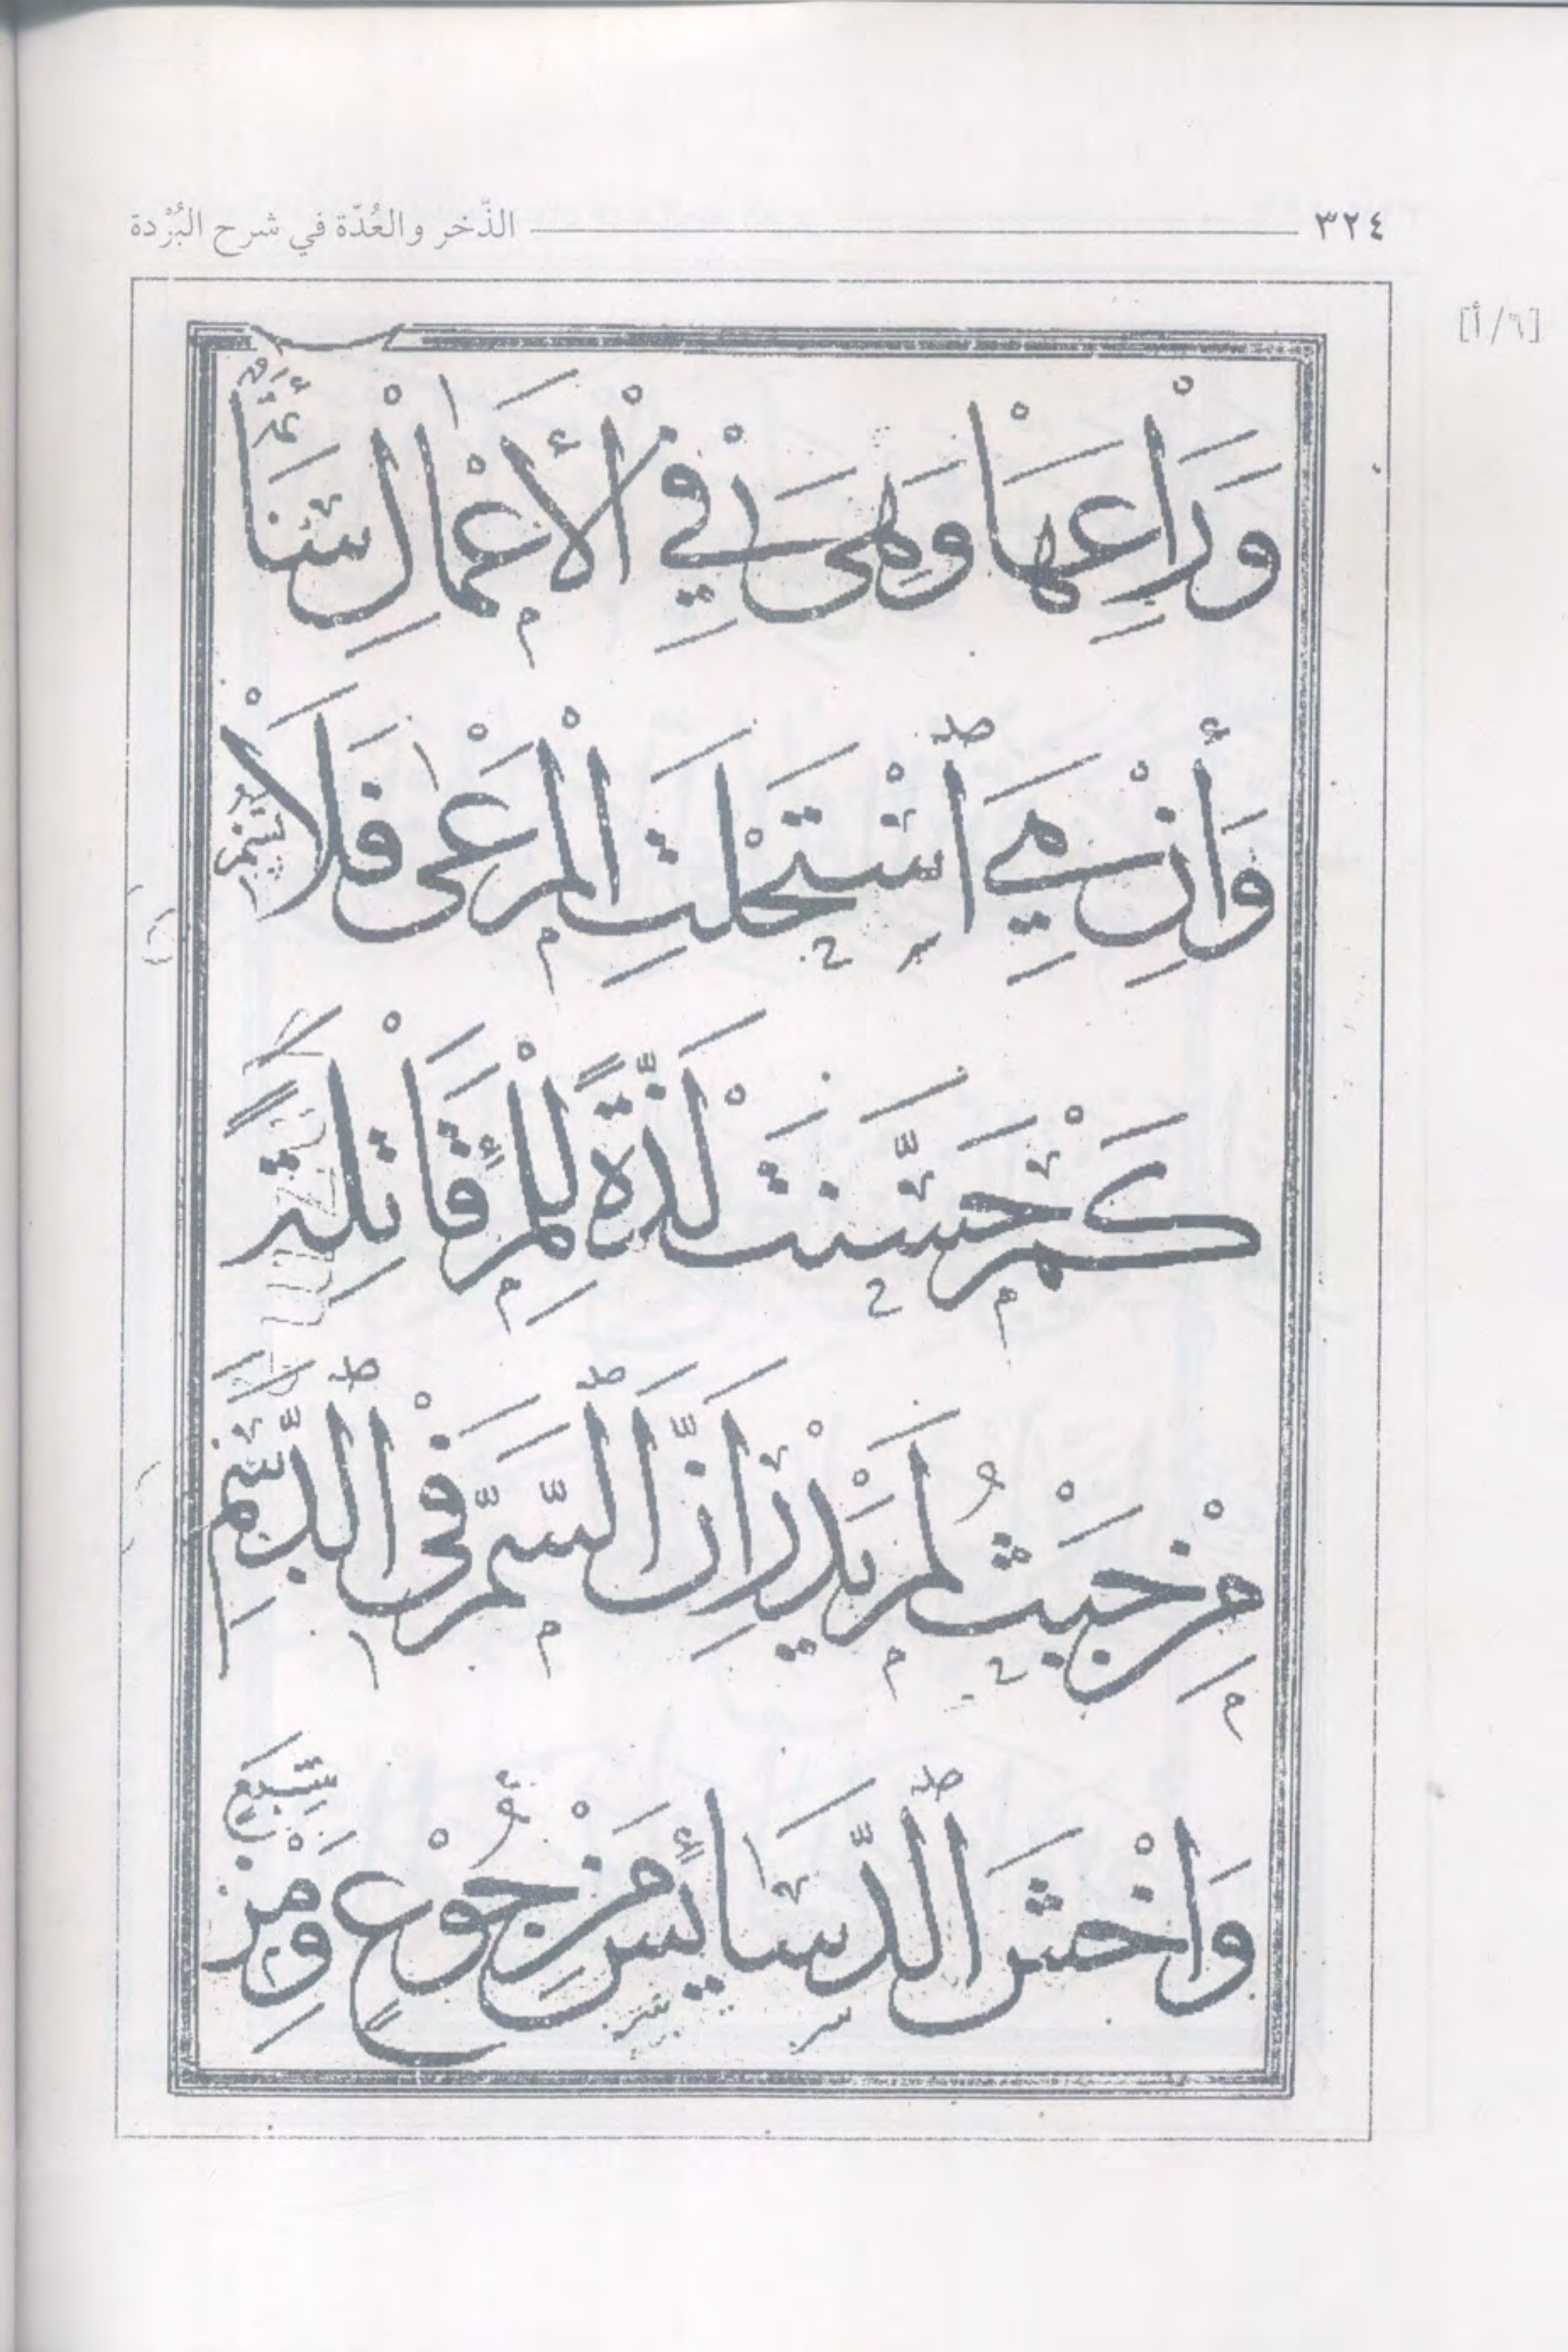 ٣٢٤ الذّخر والعُدّة في شرح البُرْدة
[٦/أ]
وَرَاعِهَا وَهْيَ فِي الْأَعْمَالِ سَائِمَةٌ
وَإِنْ هِيَ ٱسْتَحْلَتِ الْمَرْعٰى فَلَا تُسِمِ
كَمْ حَسَّنَتْ لَذَّةً لِلْمَرْءِ قَاتِلَةً
مِنْ حَيْثُ لَمْ يَدْرِ أَنَّ ٱلسَّمَّ فِي ٱلدَّسَمِ
وَاخْشَ ٱلدَّسَائِسَ مِنْ جُوْعٍ وَمِنْ شِبَعٍ